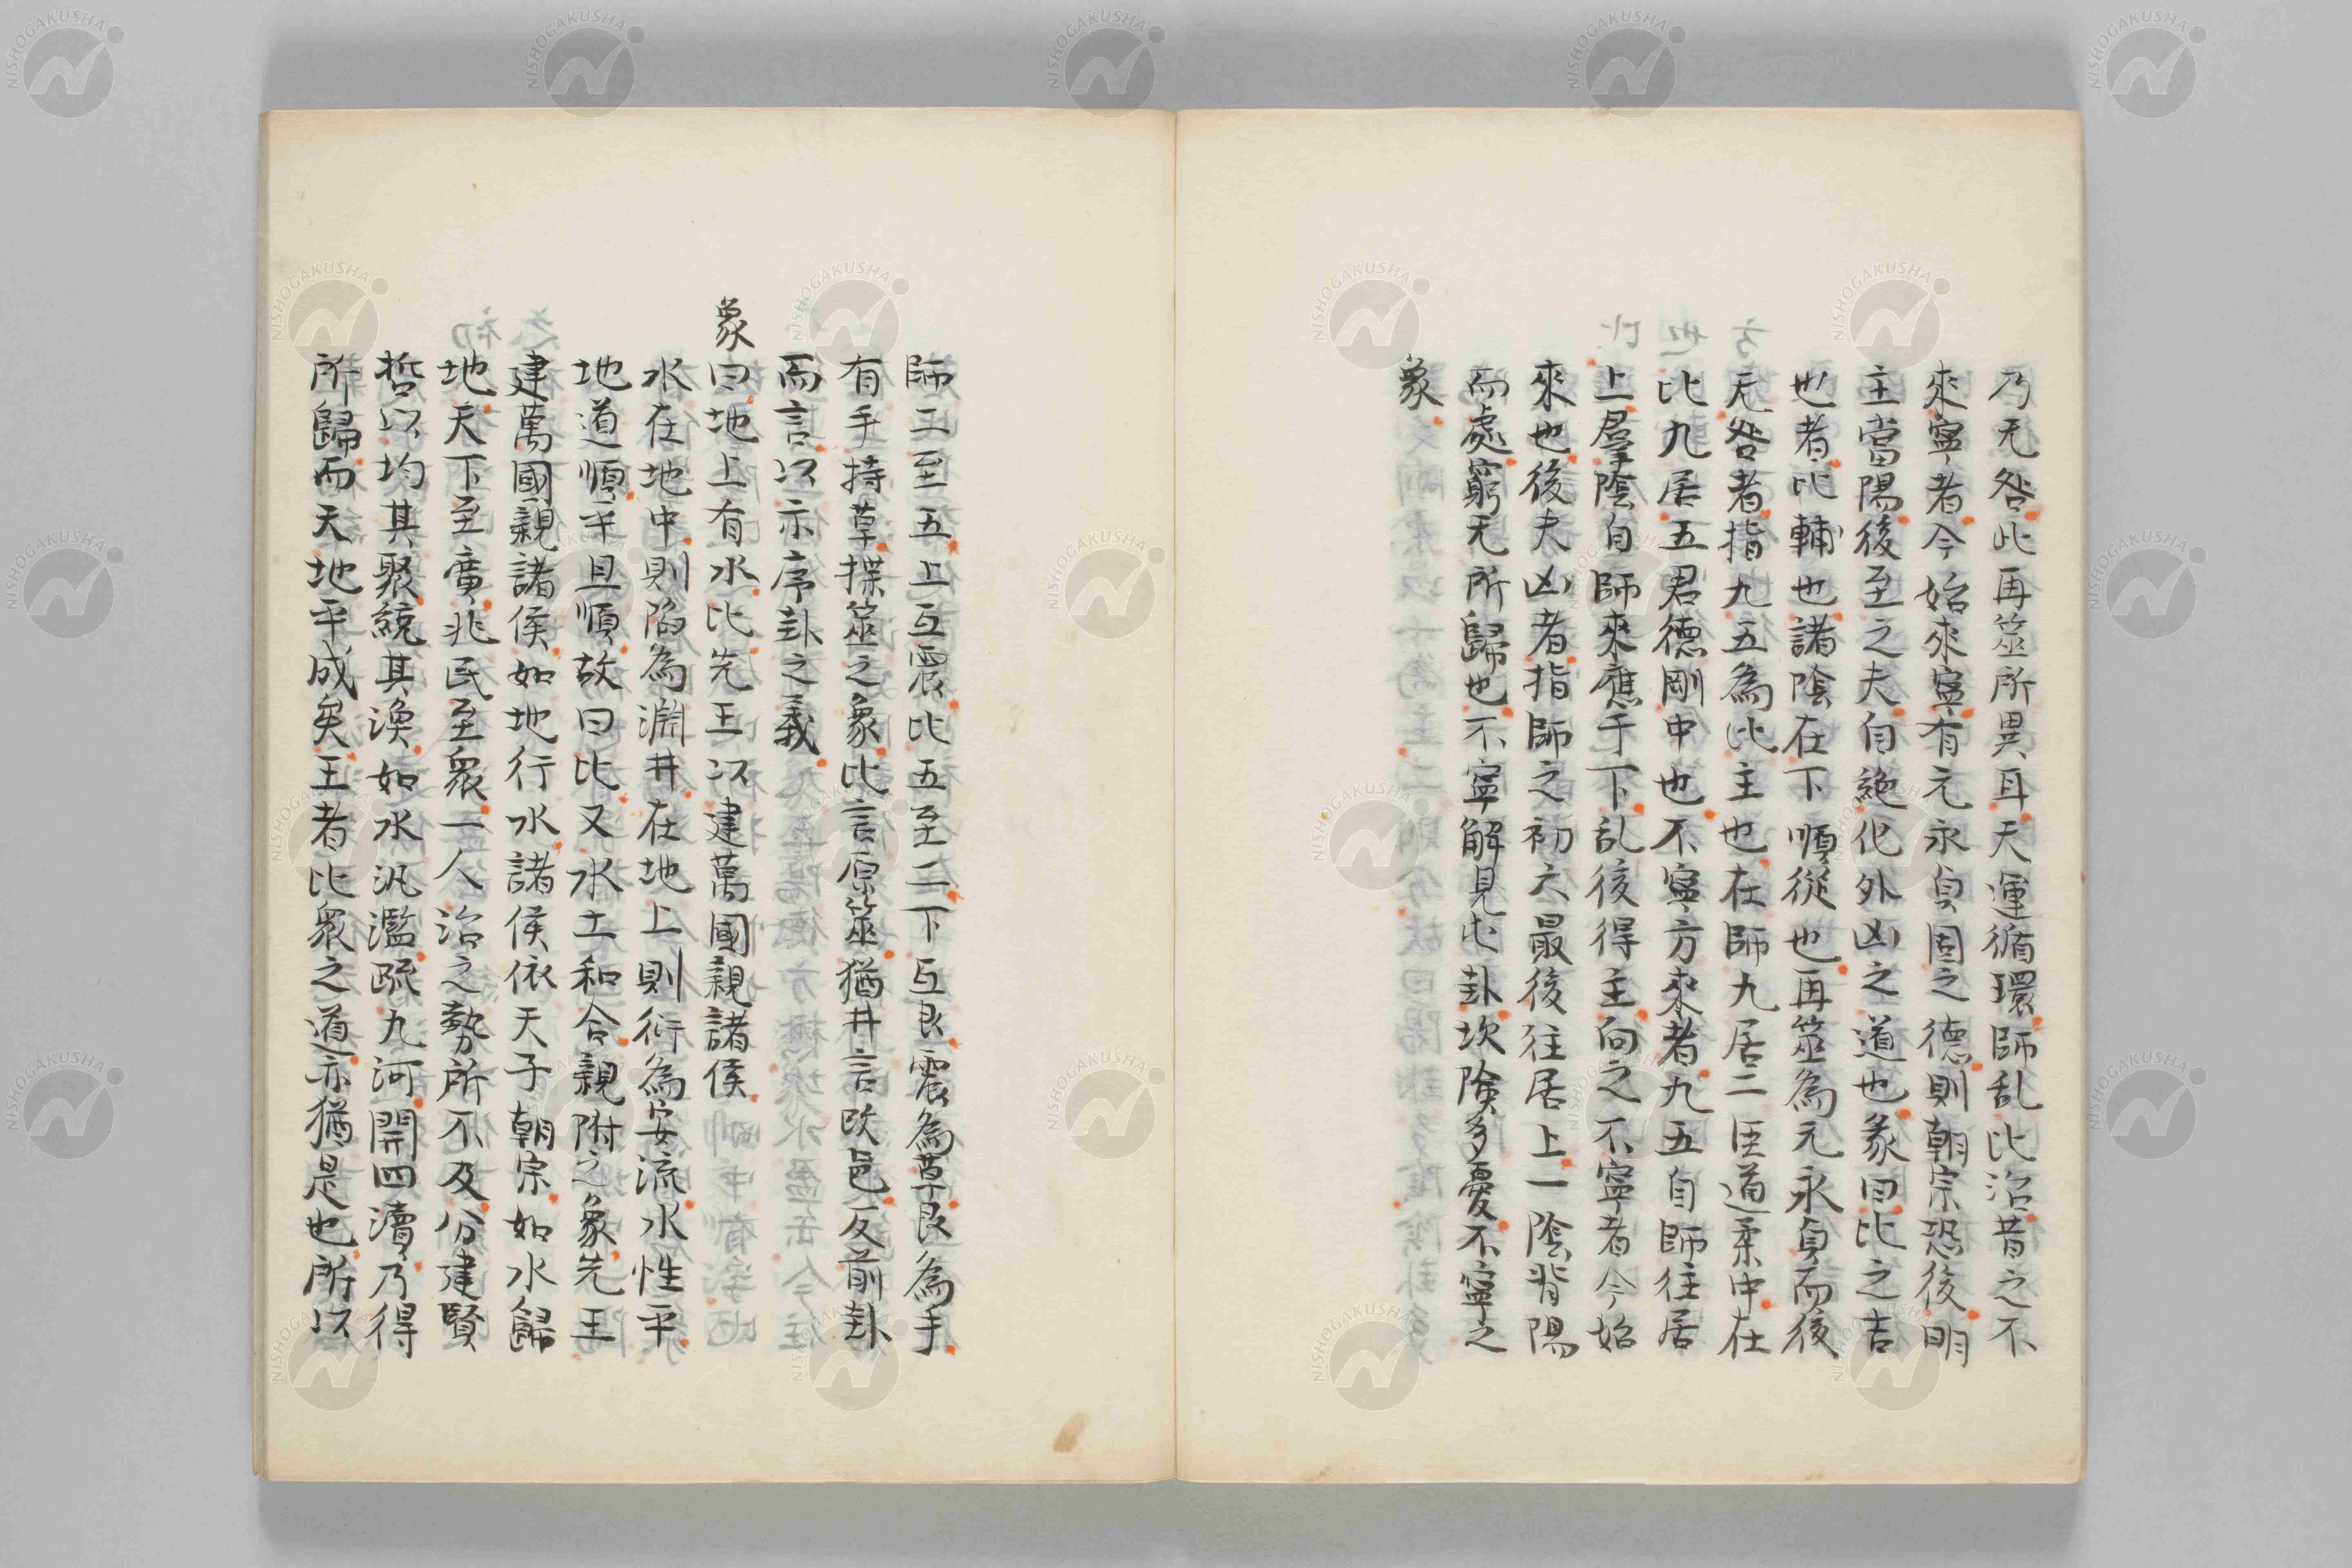 乃无咎此再筮所異耳天運循環師乱比治昔之不
來寧者今始來寧有元永貞固之德則朝宗恐後明
主當陽後至之夫自絶化外凶之道也彖曰比之吉
也者比輔也諸陰在下順從也再筮為元永貞而後
无咎者指九五為比主也在師九居二臣道柔中在
比九居五君德剛中也不寧方來者九五自師往居
上羣陰自師來應于下乱後得主向之不寧者今始
來也後夫凶者指師之初六最後往居上一陰背陽
而處窮无所歸也不寧解見屯卦坎險多憂不寧之
象
師二至五上互震比五至二下互艮震為草艮為手
有手持草揲筮之象比言原筮猶井言改邑反前卦
而言以示序卦之義
象曰地上有水比先王以建萬國親諸侯
水在地中則陷為淵井在地上則衍為安流水性平
地道順平且順故曰比又水土和合親附之象先王
建萬國親諸侯如地行水諸侯依天子朝宗如水歸
地天下至廣兆民至衆一人治之勢所不及分建賢
哲以均其聚統其渙如水汎濫疏九河開四瀆乃得
所歸而天地平成矣王者比衆之道亦猶是也所以